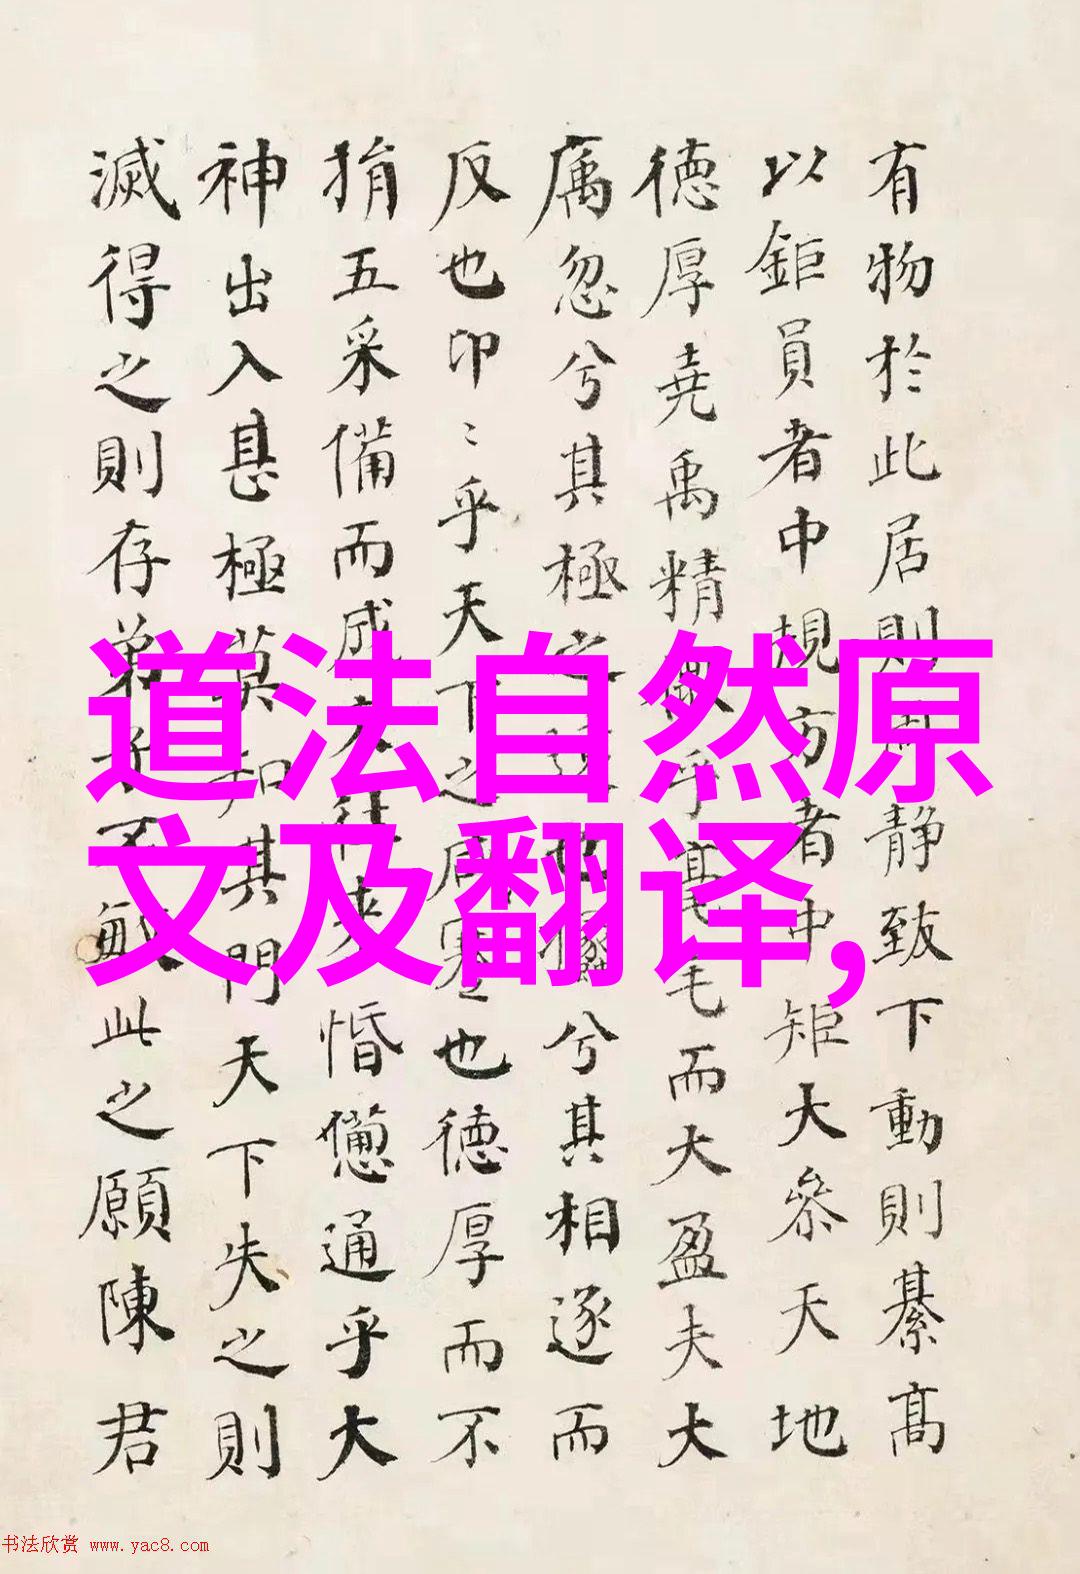 有物於此居則静致下動則綦髙
以鉅員者中規方者中矩大參天地
德厚堯禹精乎毫毛而大盈夫大
厲忽兮其極之遠也攭兮其相逐而
反也卬〻乎天下之咸蹇也德厚而不
捐五采備而成文往来惛憊通乎大
神出入甚極莫知其門天下失之則
滅得之則存弟子不敏此之願陳君
道法自然原
文及翻译,
书法欣赏 www.yac8.com